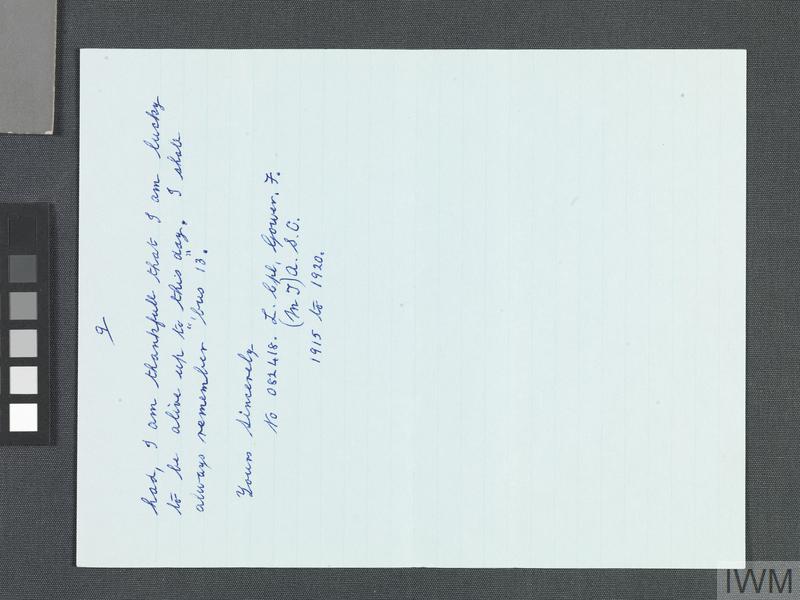 9
had, I am thankfull that I am lucky
to be alive up to this day. I shall
always remember "bus 13".
Yours Sincerely
No 082418. L. Cpl. Gower. F.
(M T) A. S. C.
1915 to 1920.
IWM